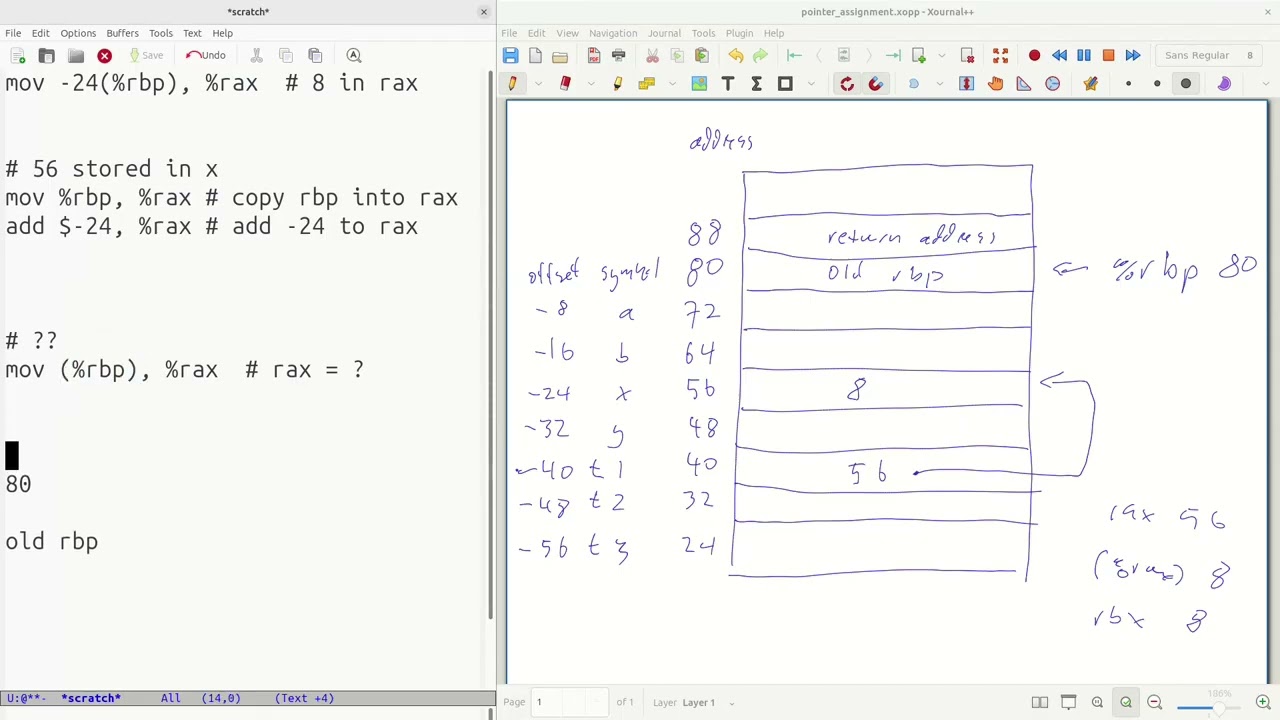 *scratch*
File Edit Options Buffers Tools Text Help
Save Undo
mov -24(%rbp), %rax # 8 in rax
# 56 stored in x
mov %rbp, %rax # copy rbp into rax
add $-24, %rax # add -24 to rax
# ??
mov (%rbp), %rax # rax = ?
80
old rbp
U:@**- *scratch* All (14,0) (Text +4)
pointer_assignment.xopp - Xournal++
File Edit View Navigation Journal Tools Plugin Help
Sans Regular 8
address
88 return address
offset symbol 80 old rbp %rbp 80
-8 a 72
-16 b 64
-24 x 56 8
-32 y 48
-40 t1 40 56
-48 t2 32
rax 56
-56 t3 24
(%rax) 8
rbx 8
Page 1 of 1 Layer Layer 1
186%